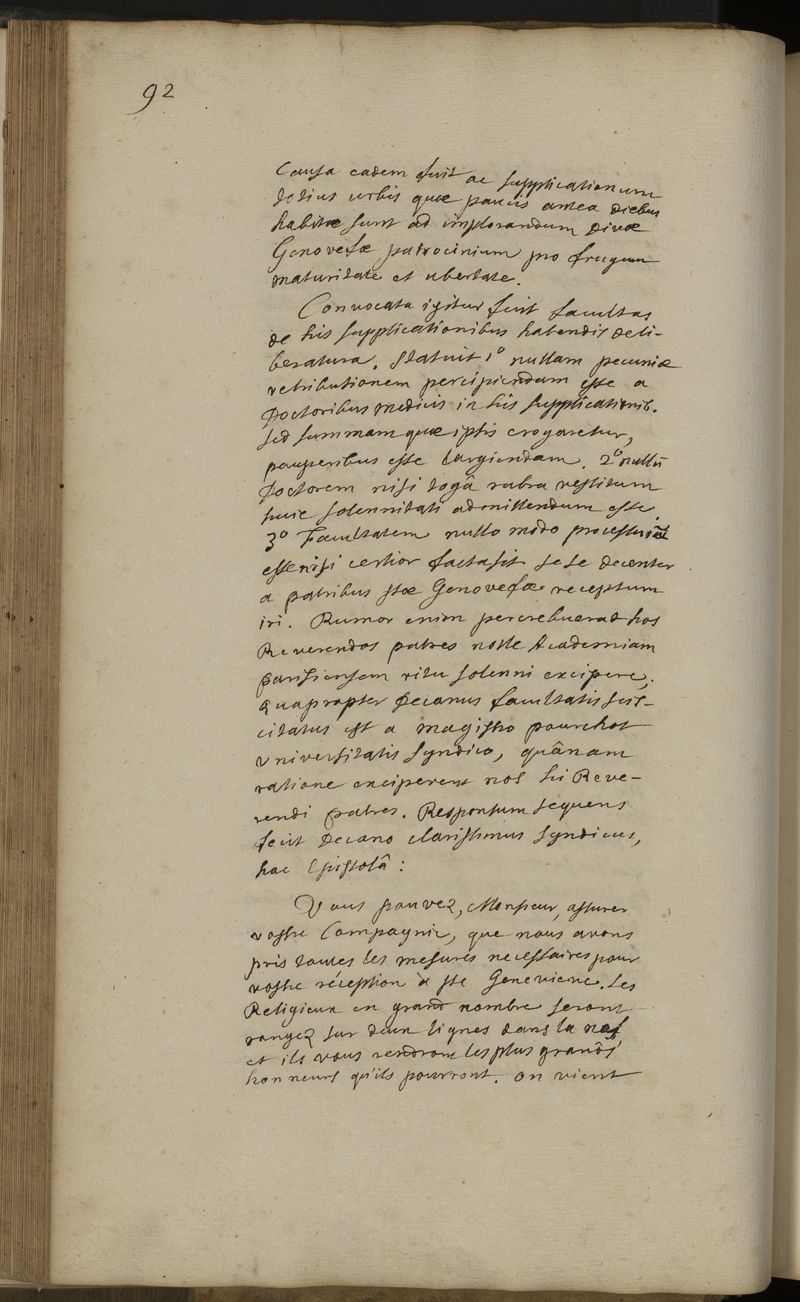 92
Causa eadem fuit ac supplicationum
totius urbis quæ paucis antea diebus
habitæ sunt ad implorandum Divæ
Genovefæ patrocinium pro frugum
maturitate et ubertate.
Convocata igitur fuit facultas
de his supplicationibus habendis deli-
beratura. Statuit 1° nullam pecuniæ
retributionem percipiendam esse a
Doctoribus medicis in his supplicationib.
sed summam quæ ipsis erogaretur,
pauperibus esse largiendam. 2° nullū
Doctorem nisi togâ rubra vestitum
huic solennitati admittendum esse.
3° Facultatem nullo modo processurā
esse nisi certior facta sit sese decenter
a patribus stæ Genovefæ receptum
iri. Rumor enim percrebuerat hos
Reverendos patres nolle Academiam
parisiensem ritu solenni excipere,
quapropter Decanus facultatis scis-
citatus est a magistro pourchot
Universitatis Syndico, quânam
ratione exciperent nos hi Reve-
rendi patres. Responsum sequens
fecit Decano clarissimus Syndicus,
hac Epistolâ:
Vous pouvez, Monsieur, assurer
vostre Compagnie, que nous avons
pris toutes les mesures necessaires pour
vostre réception à ste Genevieve. Les
Religieux en grand nombre seront
rangez sur deux lignes dans la nef
et ils vous rendront les plus grands
honneurs qu'ils pourront. on vient